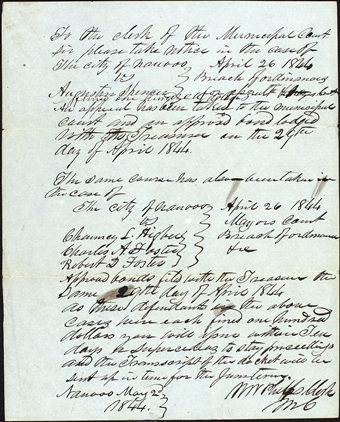 To the clerk of the Municipal Court
Sir please take notice in the case of
The city of Nauvoo } April 26 1844
vs } Breach of ordinances
Augustine Spencer
An appeal has been taken to the municipal
court and an approvd bond lodged
with the Treasurer on the 29th
day of April 1844.
The same course has also been taken in
the case of
The city of Nauvoo } April 26 1844
vs } Mayors Court
Chauncy L Higbee } Breach of ordinance
Charles A Foster } &c
Robert D Foster
Approvd bonds filed with the Treasurer the
same 29th day of April 1844
as these defendants in the above
cases were each fined one hundred
dollars you will issue within ten
days a supersedeas to stay proceedings
and the Transcript of the docket will be
sent up in time for the
Nauvoo May 2d
1844. }